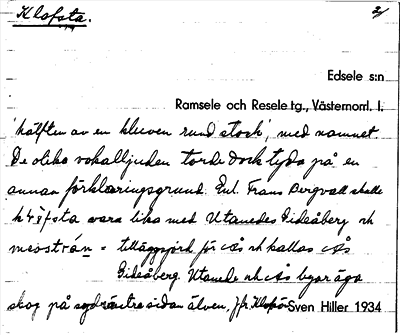 Klofsta.
2/
Edsele s:n
Ramsele och Resele tg., Västernorrl. l.
'hälften av en kluven rund stock', med namnet
De olika vokalljuden torde dock tyda på en
annan förklaringsgrund. Enl. Frans Bergvall skulle
vara lika med Utanedes Gideåberg
= tilläggsjord för kallas
Gideåberg. Utanede byar äga
skog på sydvästra sidan älven, Jfr
Sven Hiller 1934